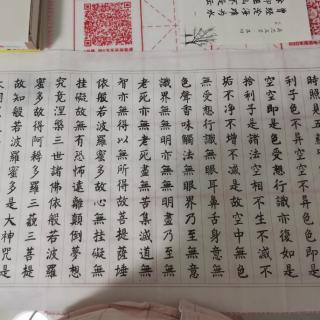 時照見五
利子色不异空空不异色色即是
空空即是色受想行識亦復如是
捨利子是諸法空相不生不滅不
垢不淨不增不減是故空中無色
無受想行識無眼耳鼻舌身意無
色聲香味觸法無眼界乃至無意
識界無無明亦無無明盡乃至無
老死亦無老死盡無苦集滅道無
智亦無得以無所得故菩提薩埵
依般若波羅蜜多故心無挂礙無
挂礙故無有恐怖遠離顛倒夢想
究竟涅槃三世諸佛依般若波羅
蜜多故得阿耨多羅三藐三菩提
故知般若波羅蜜多是大神咒是